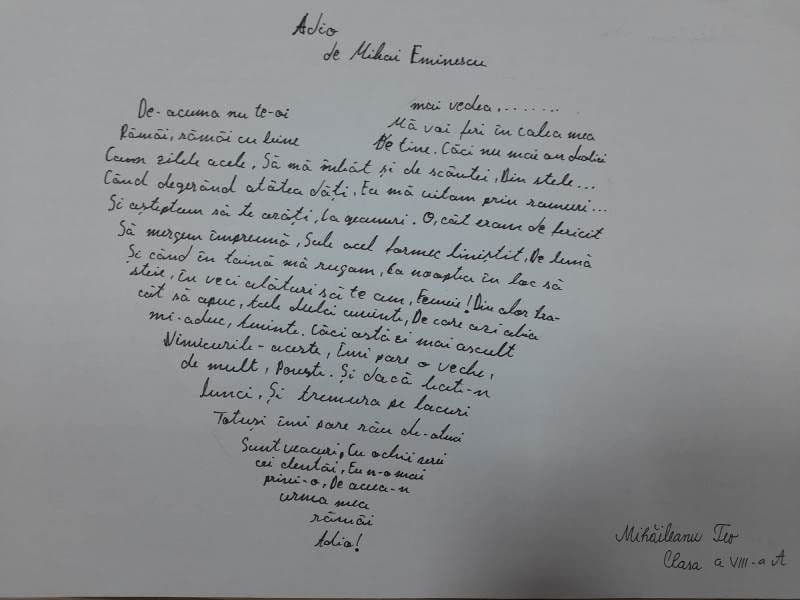 Adio
de Mihai Eminescu
De-acuma nu te-oi mai vedea,.......
Rămâi, rămâi cu bine Mă voi feri în calea mea
De tine. Căci nu mai au
Cum zilele acele, Să mă îmbăt și de scântei, Din stele...
Când degerând atâtea dăți, Eu mă uitam prin ramuri...
Și așteptam să te arăți, La geamuri. O, cât eram de fericit
Să mergem împreună, Sub acel farmec liniștit, De lună
Și când în taină mă rugam, Ca noaptea-n loc să
steie, În veci alături să te am, Femeie! Din a lor tre-
căt să apuc, tale dulci cuvinte, De care azi abia
mi-aduc, Aminte. Căci astăzi mai ascult
Nimicurile-aceste, Îmi pare o veche,
de mult, Poveste. Și dacă
lunci, Și tremura pe lacuri
Totuși îmi pare rău de-atuci
Sunt veacuri, Cu ochii serii
cei dentâi, Eu n-o mai
privi-o, De aceea-n
urma mea
rămâi
Adio!
Mihăileanu Teo
Clasa a VIII-a A